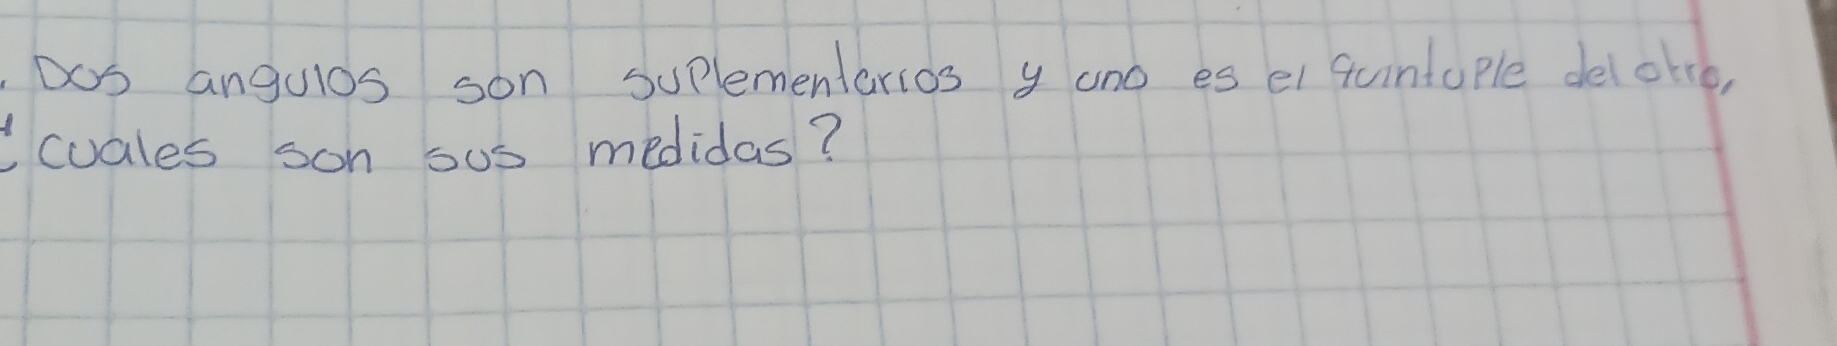 . Dos angulos son suplementarios y uno es el quintuple del otro,
¿ cuales son sus medidas?